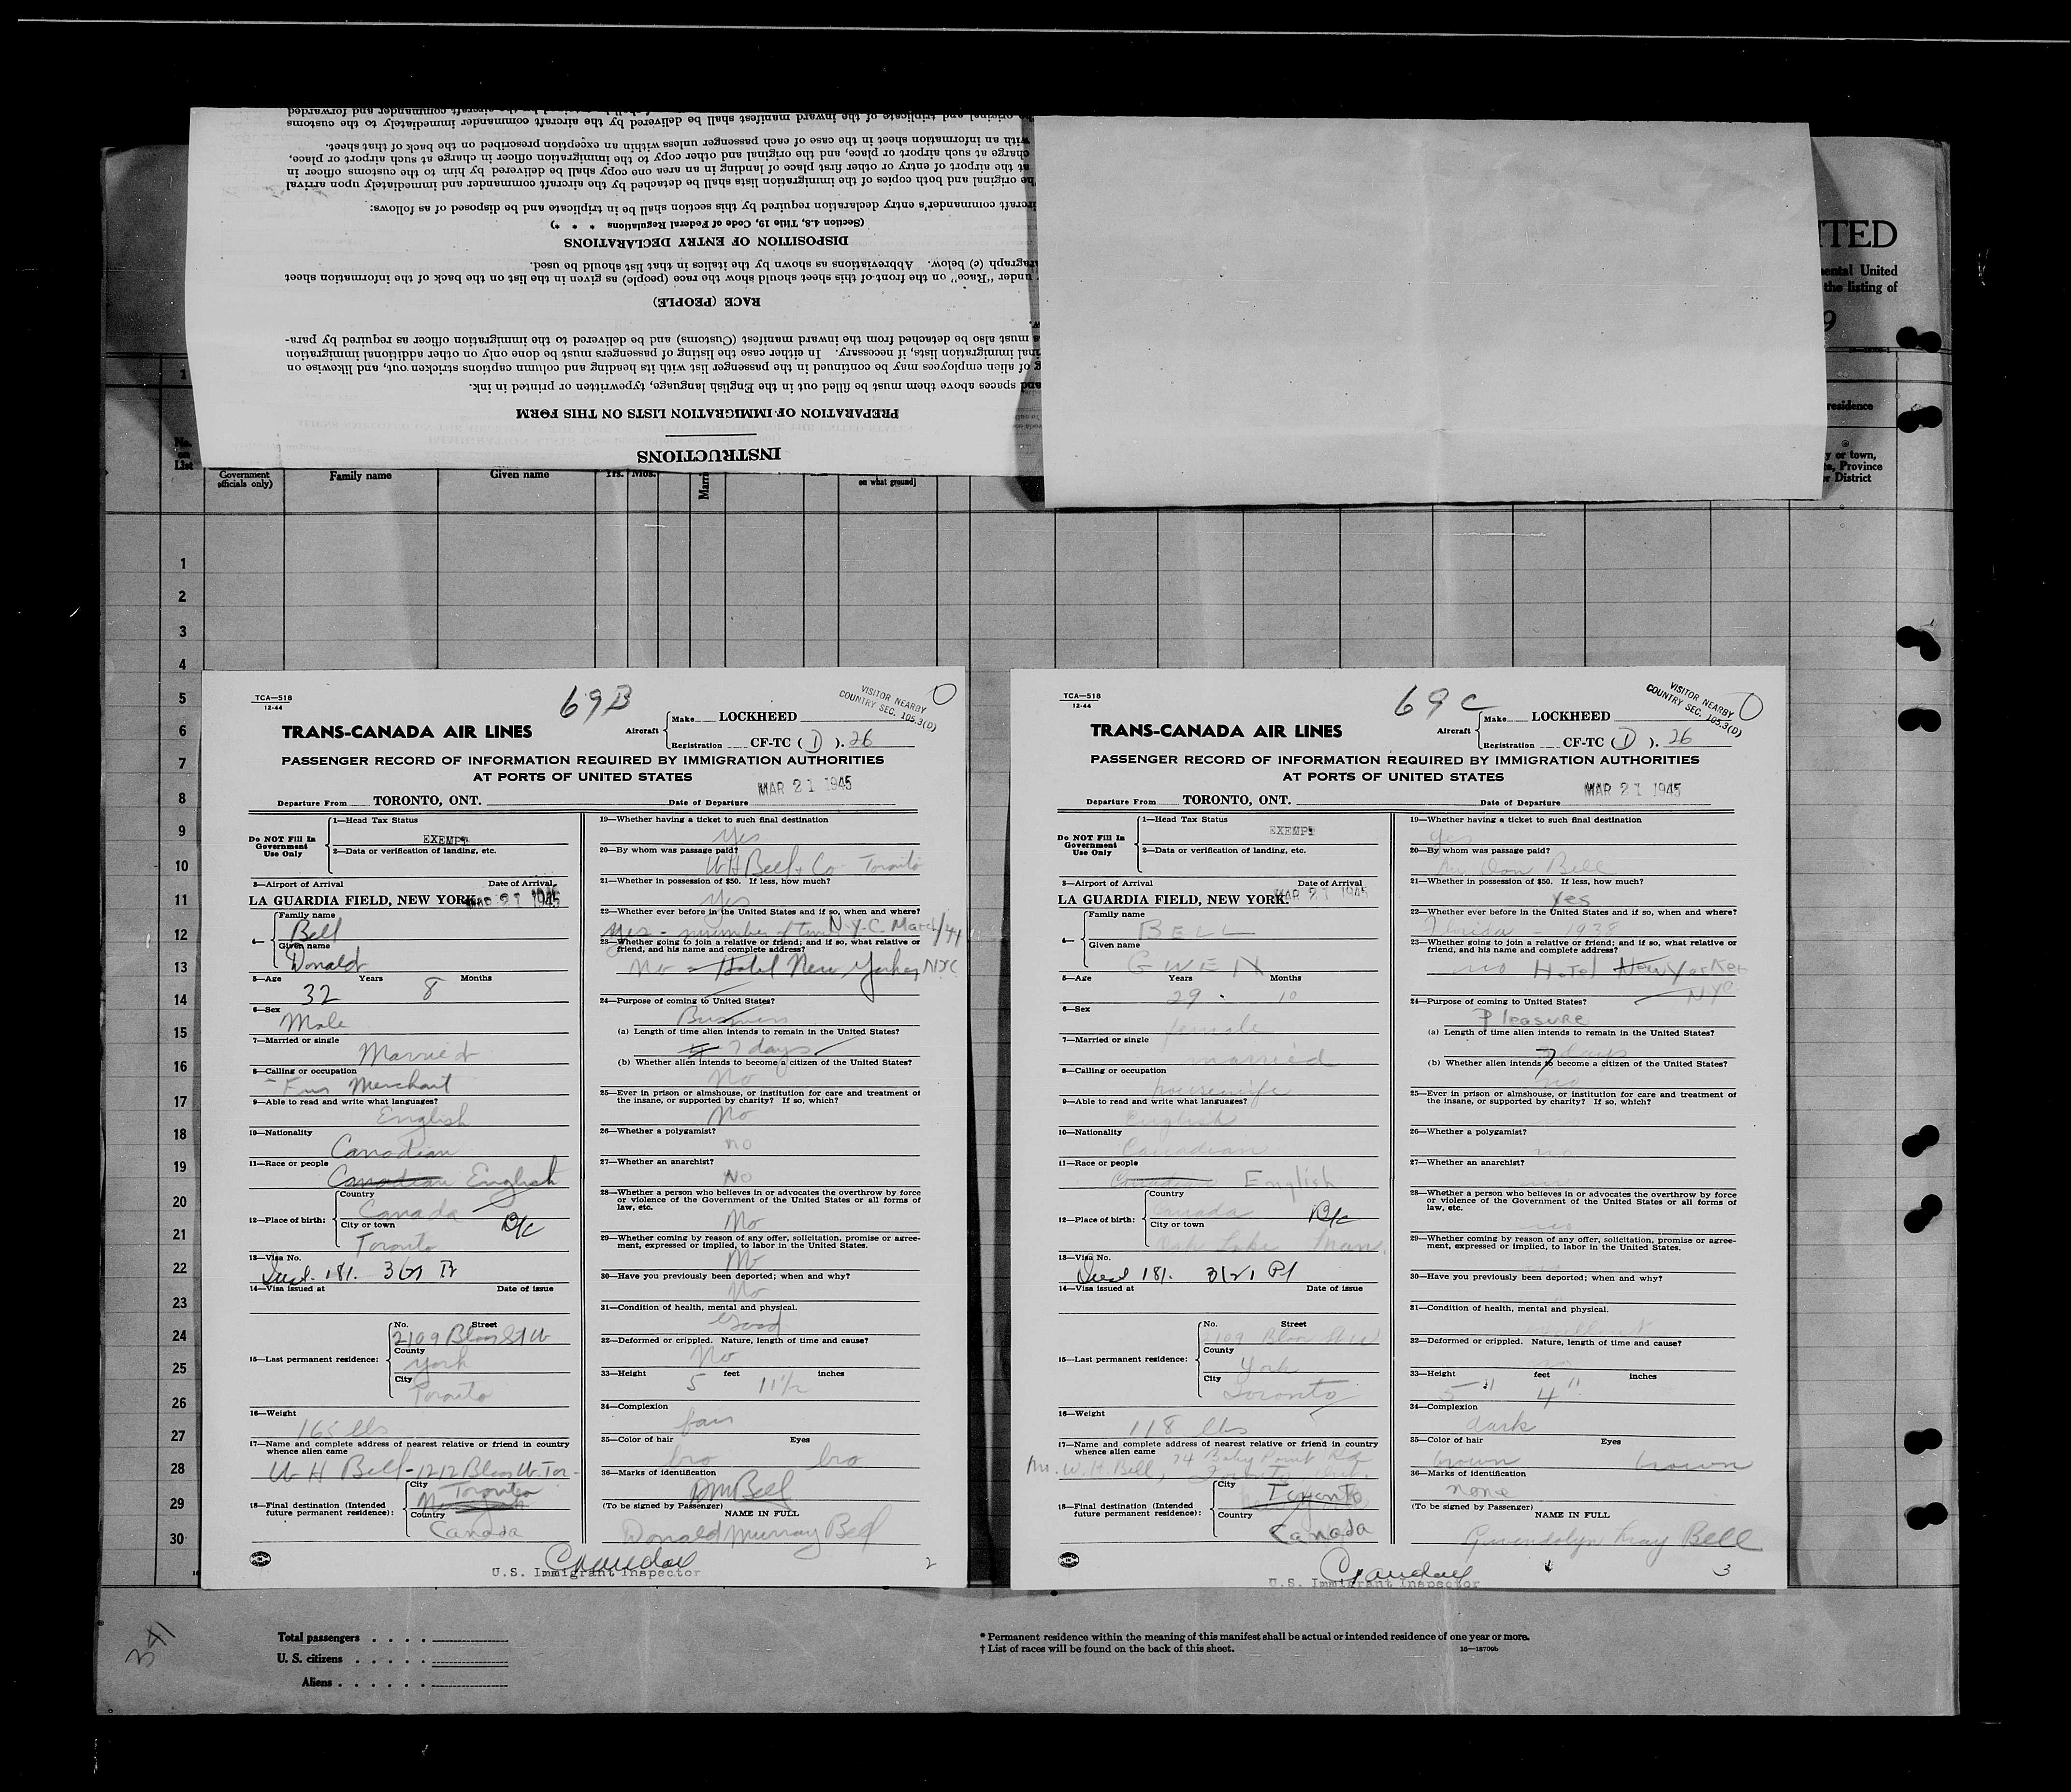 INSTRUCTIONS
PREPARATION OF IMMIGRATION LISTS ON THIS FORM
and spaces above them must be filled out in the English language, typewritten or printed in ink.
of alien employees may be continued in the passenger list with its heading and column captions stricken out, and likewise on
immigration lists, if necessary. In either case the listing of passengers must be done only on other additional immigration
must also be detached from the inward manifest (Customs) and be delivered to the immigration officer as required by para-
RACE (PEOPLE)
under "Race" on the front of this sheet should show the race (people) as given in the list on the back of the information sheet
paragraph (c) below. Abbreviations as shown by the italics in that list should be used.
DISPOSITION OF ENTRY DECLARATIONS
(Section 4.8, Title 19, Code of Federal Regulations * * *)
aircraft commander's entry declaration required by this section shall be in triplicate and be disposed of as follows:
The original and both copies of the immigration lists shall be detached by the aircraft commander and immediately upon arrival
at the airport of entry or other first place of landing in an area one copy shall be delivered by him to the customs officer in
charge at such airport or place, and the original and other copy to the immigration officer in charge at such airport or place,
with an information sheet in the case of each passenger unless within an exception prescribed on the back of that sheet.
The original and triplicate of the inward manifest shall be delivered by the aircraft commander immediately to the customs
ITED
United
the listing of
9
residence
or town,
Province
District
No.
on
List
Government
officials only)
Family name
Given name
Yrs.
Mos.
on what ground]
1
2
3
4
5
6
7
8
9
10
11
12
13
14
15
16
17
18
19
20
21
22
23
24
25
26
27
28
29
30
TCA—518
12-44
69B
VISITOR NEARBY
COUNTRY SEC. 105.3(D)
TRANS-CANADA AIR LINES
Aircraft
Make LOCKHEED
Registration CF-TC ( D ). 26
PASSENGER RECORD OF INFORMATION REQUIRED BY IMMIGRATION AUTHORITIES
AT PORTS OF UNITED STATES
MAR 21 1945
Departure From TORONTO, ONT. Date of Departure
Do NOT Fill In
Government
Use Only
1—Head Tax Status
EXEMPT
2—Data or verification of landing, etc.
3—Airport of Arrival Date of Arrival
LA GUARDIA FIELD, NEW YORK. MAR 21 1945
4— Family name
Bell
Given name
Donald
5—Age Years Months
32 8
6—Sex
Male
7—Married or single
Married
8—Calling or occupation
Fur Merchant
9—Able to read and write what languages?
English
10—Nationality
Canadian
11—Race or people
Canadian English
12—Place of birth:
Country
Canada
City or town B/C
Toronto
13—Visa No.
181.
14—Visa issued at Date of issue
15—Last permanent residence:
No. Street
2109 Bloor St W
County
York
City
Toronto
16—Weight
165 lbs
17—Name and complete address of nearest relative or friend in country
whence alien came
W H Bell - 1212 Bloor W. Tor-
18—Final destination (Intended
future permanent residence):
City
Toronto
Country
Canada
19—Whether having a ticket to such final destination
Yes
20—By whom was passage paid?
W H Bell & Co Toronto
21—Whether in possession of $50. If less, how much?
Yes
22—Whether ever before in the United States and if so, when and where?
yes - number of times N.Y.C. March/41
23—Whether going to join a relative or friend; and if so, what relative or
friend, and his name and complete address?
No - Hotel New Yorker, NYC
24—Purpose of coming to United States?
Business
(a) Length of time alien intends to remain in the United States?
7 days
(b) Whether alien intends to become a citizen of the United States?
No
25—Ever in prison or almshouse, or institution for care and treatment of
the insane, or supported by charity? If so, which?
No
26—Whether a polygamist?
no
27—Whether an anarchist?
No
28—Whether a person who believes in or advocates the overthrow by force
or violence of the Government of the United States or all forms of
law, etc.
No
29—Whether coming by reason of any offer, solicitation, promise or agree-
ment, expressed or implied, to labor in the United States.
No
30—Have you previously been deported; when and why?
No
31—Condition of health, mental and physical.
Good
32—Deformed or crippled. Nature, length of time and cause?
No
33—Height feet inches
5 11 1/2
34—Complexion
fair
35—Color of hair Eyes
bro bro
36—Marks of identification
DM Bell
(To be signed by Passenger) NAME IN FULL
Donald Murray Bell
U.S. Immigrant Inspector
2
TCA—518
12-44
69C
VISITOR NEARBY
COUNTRY SEC. 105.3(D)
TRANS-CANADA AIR LINES
Aircraft
Make LOCKHEED
Registration CF-TC ( D ). 26
PASSENGER RECORD OF INFORMATION REQUIRED BY IMMIGRATION AUTHORITIES
AT PORTS OF UNITED STATES
MAR 21 1945
Departure From TORONTO, ONT. Date of Departure
Do NOT Fill In
Government
Use Only
1—Head Tax Status
EXEMPT
2—Data or verification of landing, etc.
3—Airport of Arrival Date of Arrival
LA GUARDIA FIELD, NEW YORK. MAR 21 1945
4— Family name
BELL
Given name
GWEN
5—Age Years Months
29 10
6—Sex
female
7—Married or single
married
8—Calling or occupation
housewife
9—Able to read and write what languages?
English
10—Nationality
Canadian
11—Race or people
Canadian English
12—Place of birth:
Country
Canada B/C
City or town
Oak Lake Man.
13—Visa No.
181.
14—Visa issued at Date of issue
15—Last permanent residence:
No. Street
2109 Bloor St W
County
York
City
Toronto
16—Weight
118 lbs
17—Name and complete address of nearest relative or friend in country
whence alien came
Mr. W. H. Bell, 74 Baby Point Rd
Toronto Ont.
18—Final destination (Intended
future permanent residence):
City
Toronto
Country
Canada
19—Whether having a ticket to such final destination
Yes
20—By whom was passage paid?
Mr Don Bell
21—Whether in possession of $50. If less, how much?
Yes
22—Whether ever before in the United States and if so, when and where?
Florida - 1938
23—Whether going to join a relative or friend; and if so, what relative or
friend, and his name and complete address?
no Hotel New Yorker
NYC
24—Purpose of coming to United States?
Pleasure
(a) Length of time alien intends to remain in the United States?
7 days
(b) Whether alien intends to become a citizen of the United States?
no
25—Ever in prison or almshouse, or institution for care and treatment of
the insane, or supported by charity? If so, which?
26—Whether a polygamist?
no
27—Whether an anarchist?
no
28—Whether a person who believes in or advocates the overthrow by force
or violence of the Government of the United States or all forms of
law, etc.
no
29—Whether coming by reason of any offer, solicitation, promise or agree-
ment, expressed or implied, to labor in the United States.
30—Have you previously been deported; when and why?
31—Condition of health, mental and physical.
32—Deformed or crippled. Nature, length of time and cause?
no
33—Height feet inches
5" 4"
34—Complexion
dark
35—Color of hair Eyes
brown brown
36—Marks of identification
none
(To be signed by Passenger) NAME IN FULL
Gwendolyn May Bell
U.S. Immigrant Inspector
3
341
Total passengers . . . .
U. S. citizens . . . . .
Aliens . . . . . .
* Permanent residence within the meaning of this manifest shall be actual or intended residence of one year or more.
† List of races will be found on the back of this sheet.
16—18700b